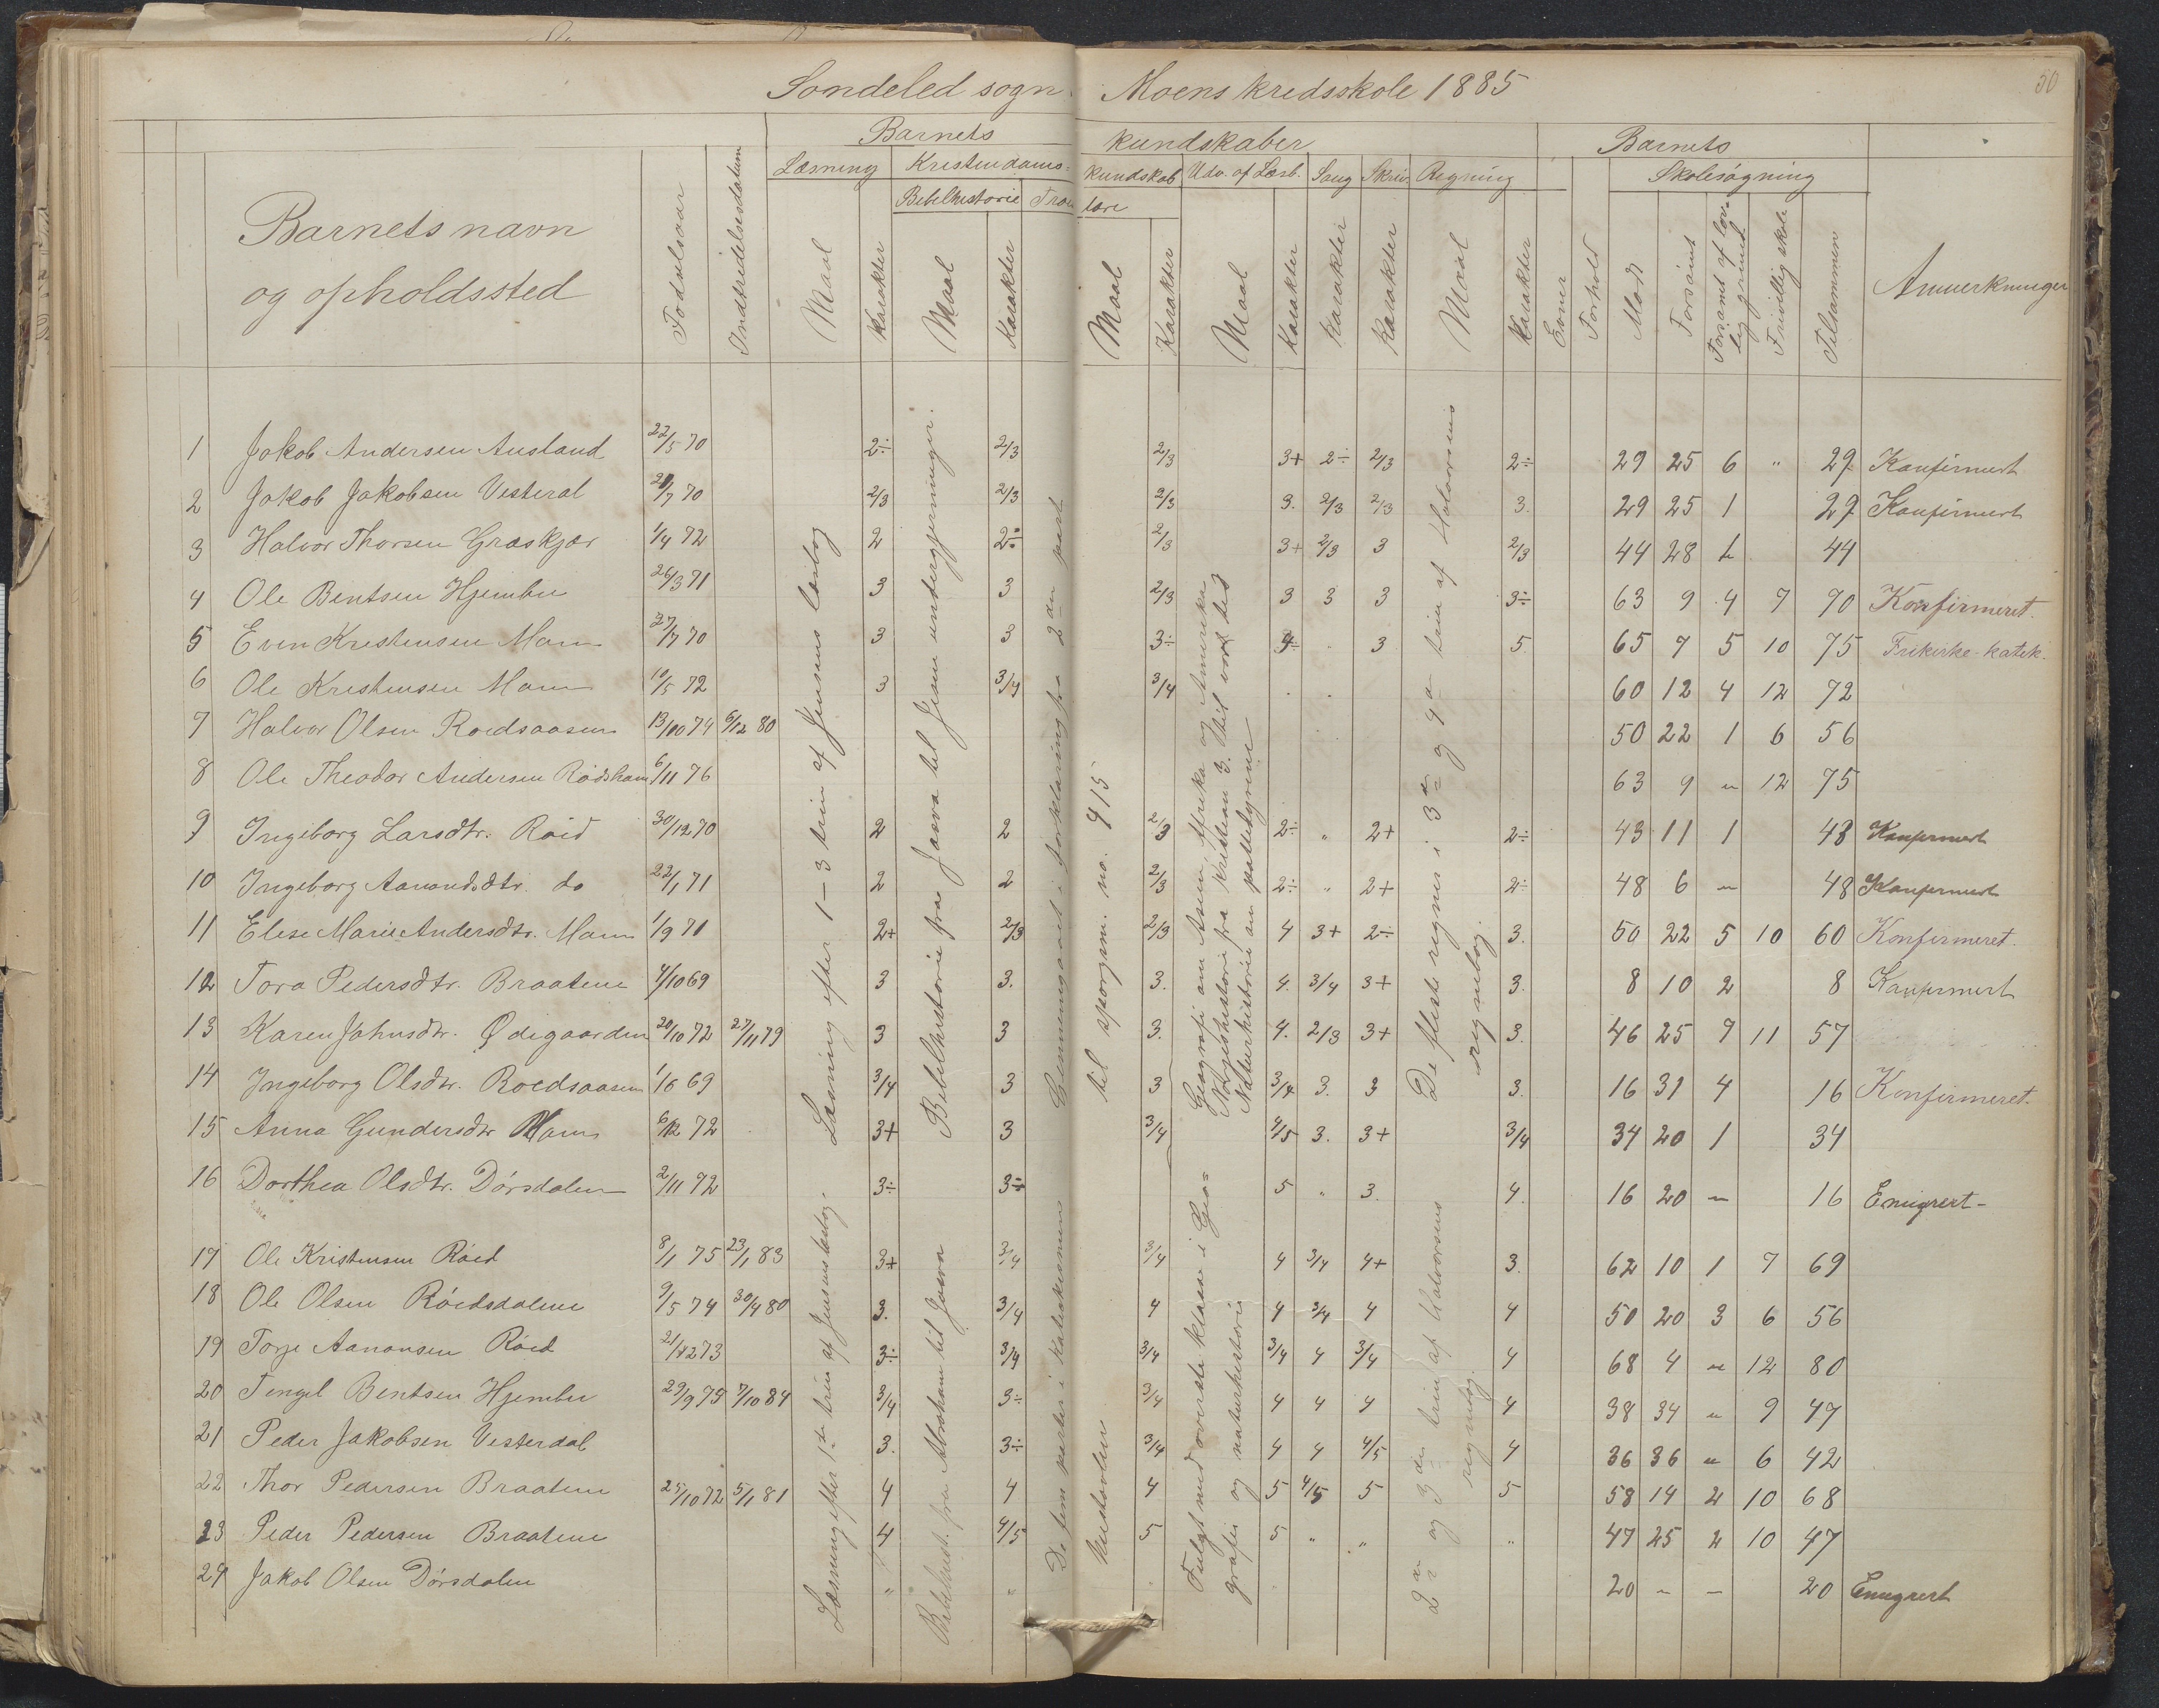 Sondeled sogn. Moens kredsskole 1885
50
Barnets kundskaber Barnets
Læsning Kristendoms- kundskab Udv. af Læsb. Sang Skriv. Regning Skolesøgning
Bibelhistorie Troes lære
Barnets navn og opholdssted Fødselsaar Indtrædelsesdatum Maal Karakter Maal Karakter Maal Karakter Maal Karakter Karakter Karakter Maal Karakter Evner Forhold Mødt Forsømt Forsømt af lovlig grund Frivillig skole Tilsammen Anmerkninger
1 Jakob Andersen Ausland 22/5 70 2÷ 2/3 2/3 3+ 2÷ 2/3 2÷ 29 25 6 " 29 Konfirmert
2 Jakob Jakobsen Vesteral 21/7 70 2/3 2/3 2/3 3. 2/3 2/3 3. 29 25 1 29 Konfirmert
3 Halvor Thorsen Græskjær 1/4 72 2 2÷ 2/3 3+ 2/3 3 2/3 44 28 1 44
4 Ole Bentsen Hjembu 26/3 71 3 3 2/3 3 3 3 3÷ 63 9 4 7 70 Konfirmeret.
5 Even Kristensen Moen 27/7 70 3 3 3÷ 4÷ . 3 5. 65 7 5 10 75 Frikirke-katek.
6 Ole Kristensen Moen 10/5 72 3 3/4 3/4 . . 60 12 4 12 72
7 Halvor Olsen Roedsaasen 13/10 74 6/12 80 50 22 1 6 56
8 Ole Theodor Andersen Rødsham 6/11 76 63 9 " 12 75
9 Ingeborg Larsdtr. Røid 30/12 70 2 2 2/3 2÷ " 2+ 2÷ 43 11 1 43 Konfirmert
10 Ingeborg Aanonsdtr. do 22/1 71 2 2 2/3 2÷ " 2+ 2÷ 48 6 " 48 Konfirmert
11 Elese Marie Andersdtr. Moen 1/9 71 2+ 2/3 2/3 4 3+ 2÷ 3. 50 22 5 10 60 Konfirmeret.
12 Tora Pedersdtr. Braatene 4/10 69 3 3. 3. 4. 3/4 3+ 3. 8 10 2 8 Konfirmert
13 Karen Johnsdtr. Ødegaarden 20/10 72 27/11 79 3 3 3. 4. 2/3 3+ 3. 46 25 7 11 57
14 Ingeborg Olsdtr. Roedsaasen 1/6 69 3/4 3 3 3/4 3. 3 3. 16 31 4 16 Konfirmeret.
15 Anna Gundersdtr Moen 6/12 72 3+ 3 3/4 4/5 3. 3+ 3/4 34 20 1 34
16 Dorthea Olsdtr. Dørsdalen 2/11 72 3÷ 3÷ 5 " 3. 4. 16 20 " 16 Emigrert-
17 Ole Kristensen Røed 8/1 75 23/1 83 3+ 3/4 3/4 4 3/4 4+ 3. 62 10 1 7 69
18 Ole Olsen Røedsdalene 9/5 74 30/4 80 3. 3/4 4 4 3/4 4 4 50 20 3 6 56
19 Torje Aanonsen Røed 21/12 73 3÷ 3/4 3/4 3/4 4 3/4 4 68 4 " 12 80
20 Tengel Bentsen Hjembu 29/9 75 7/10 84 3/4 3÷ 3/4 4 4 4 4 38 34 " 9 47
21 Peder Jakobsen Vesterdal 3. 3÷ 3/4 4 4 4/5 4 36 36 " 6 42
22 Thor Pedersen Braatene 25/10 72 5/1 81 4 4 4 5 4/5 5 5 58 14 2 10 68
23 Peder Pedersen Braatene 4 4/5 5 5 " " " 47 25 2 10 47
24 Jakob Olsen Dørsdalen " " 20 - - 20 Emigrert
Læsning efter 1-3 trin af Jensens læsebog
Bibelhistorie fra Josva til Jesu undergjerninger.
Gjennemgaaet i forklaring fra 2den part
til spørgsm. no. 415
Geografi om Asien, Afrika og Amerika
Norgeshistorie fra Kristian 3. til vor tid
Naturhistorie om pattedyrene
De fleste regnes i 3de og 4de trin af Halvorsens
regnebog.
Læsning efter 1ste trin af Jensens læsebog.
Bibelhist. fra Abraham til Josva
De fem parter i Katekismens
Fulgt med øverste klasse i Geo-
grafi og naturhistorie
2den og 3die trin af Halvorsens
regnebog.